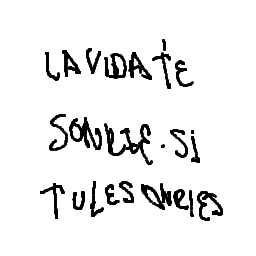 LA VIDA TE
SONRIE. SI
TU LE SONRIES